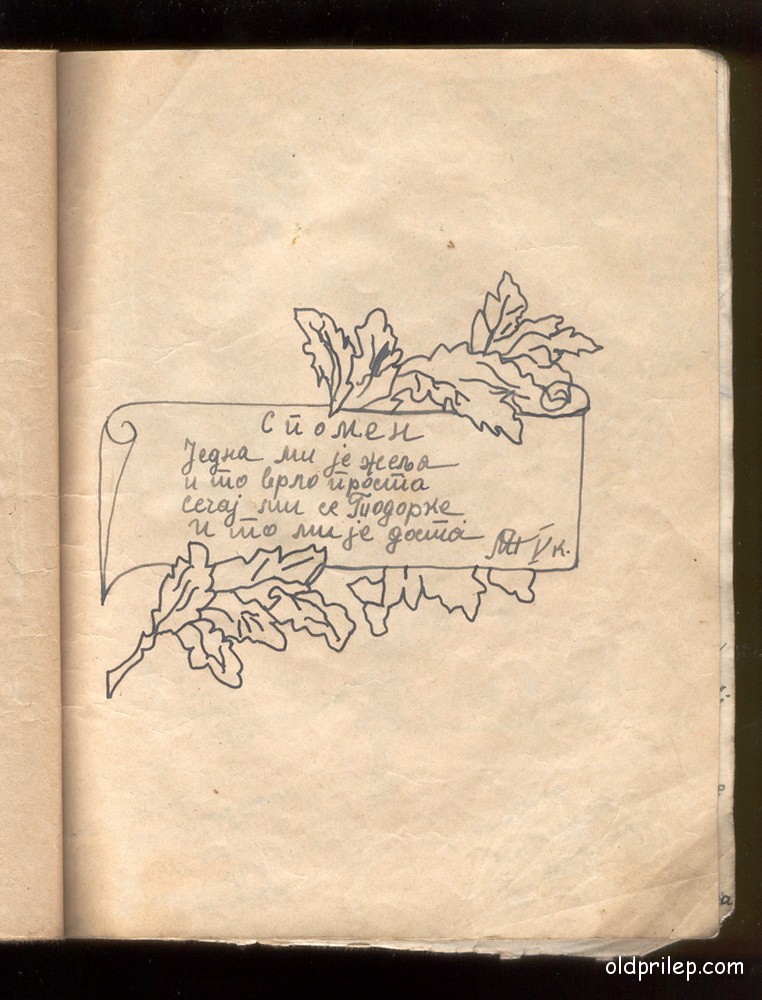 Спомен
Једна ми је жеља
и то врло проста
сечај ми се Тодорке
и то ми је доста
V к.
oldprilep.com